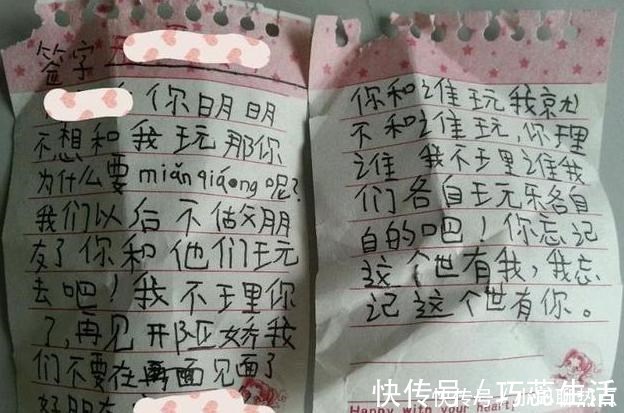 签字
你明明
不想和我玩那你
为什么要miǎnqiáng呢?
我们以后不做朋
友了你和他们玩
去吧!我不理你
了,再见
我
们不要在 见面了
好朋友
你和谁玩我就
不和谁玩,你理
谁 我不理谁我
们各自玩乐各自
自的吧!你忘记
这个世有我,我忘
记这个世有你。
Happy with your heart
快传号/巧蕊生活